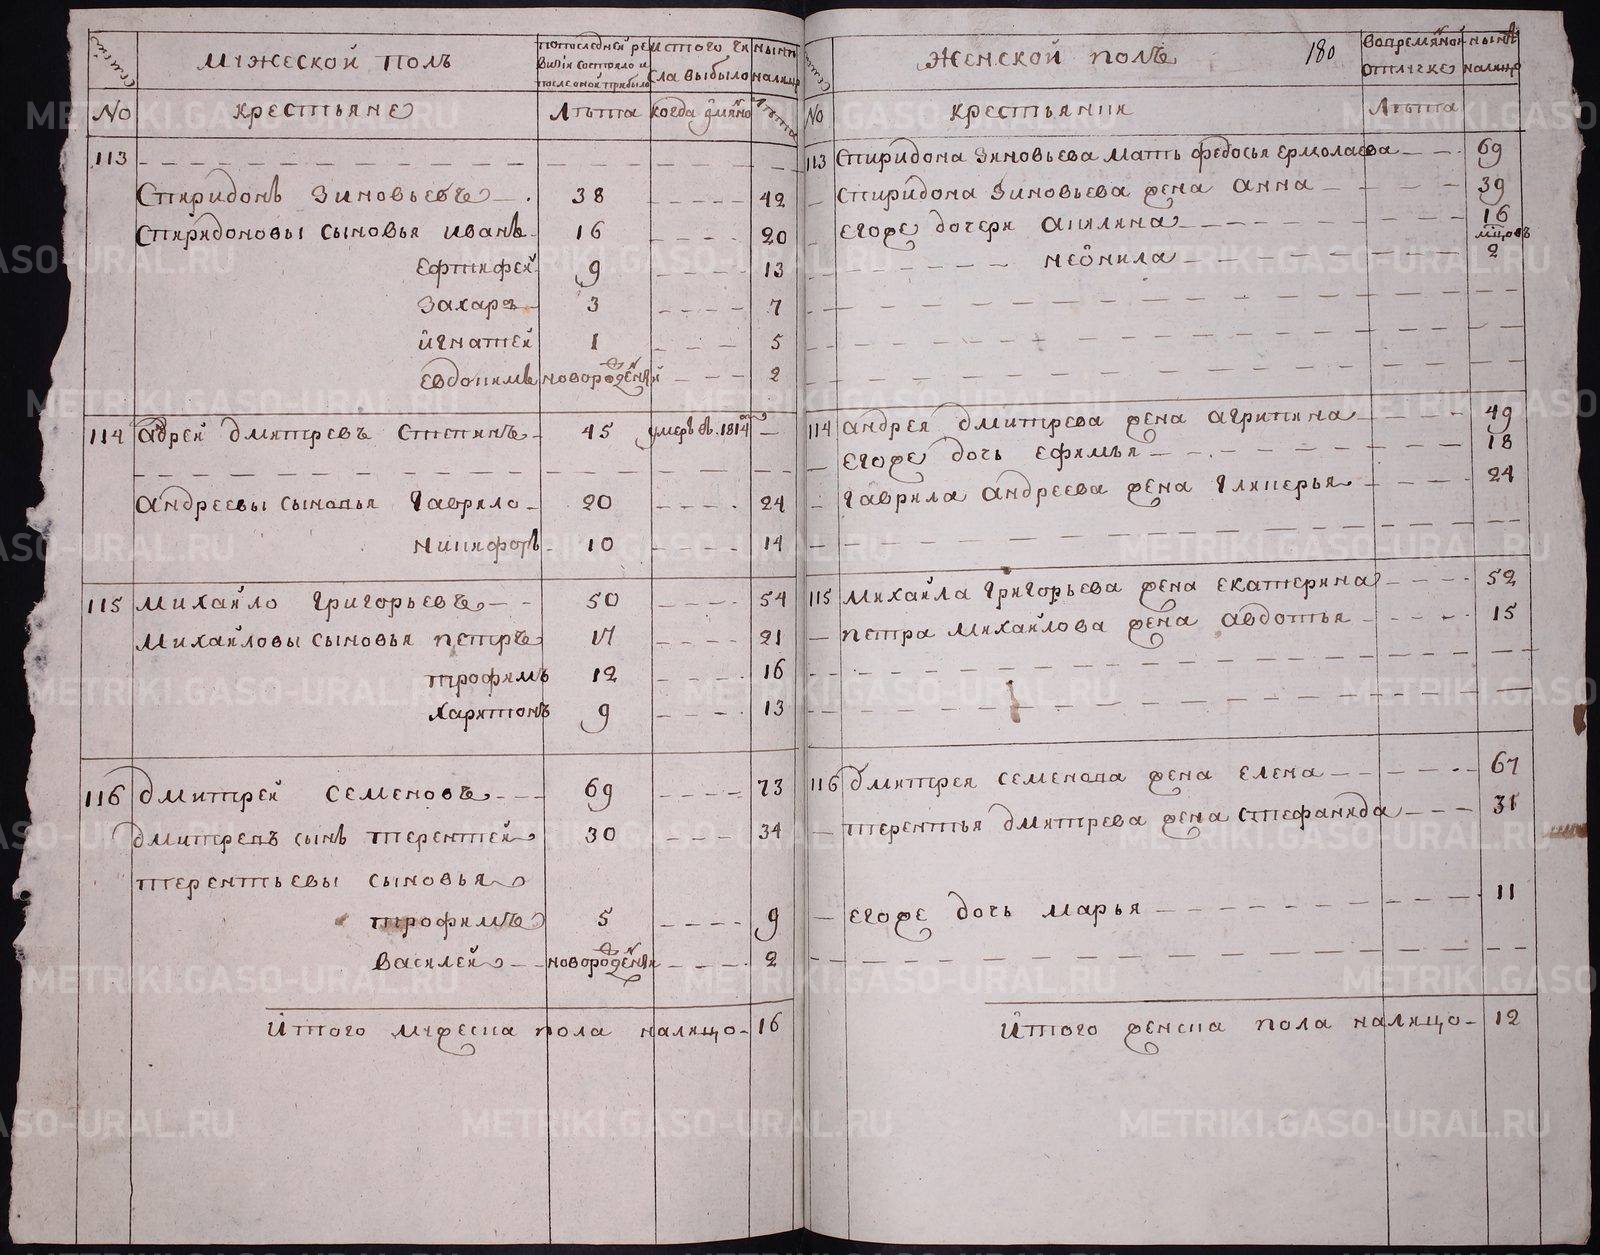 семьи
Мужеской полъ
по последней ре
визiи состояло и
после оной прибыло
Ис того чи
сла выбыло
ныне
налицо
No
крестьяне
Лѣта
когда имяно
Лѣта
113
Спиридонъ Зиновьевъ 38 42
Спиридоновы сыновья Иванъ 16 20
Ефтифей 9 13
Захаръ 3 7
Игнатей 1 5
Евдокимъ новорожденый 2
114 Адрей Дмитревъ Степинъ 45 умеръ въ 1814м
Андреевы сыновья Гаврило 20 24
Никифоръ 10 14
115 Михайло Григорьевъ 50 54
Михайловы сыновья Петръ 17 21
Трофимъ 12 16
Харитонъ 9 13
116 Дмитрей Семеновъ 69 73
Дмитревъ сынъ Терентей 30 34
Терентьевы сыновья
Трофимъ 5 9
Василей новорожденый 2
Итого мужеска пола налицо 16
семьи
Женской полъ
180
Во времяной
отлучке
ныне
налицо
No
крестьянки
Лѣта
113 Спиридона Зиновьева мать Федосья Ермолаева 69
Спиридона Зиновьева жена Анна 39
Егоже дочери Акилина 16
мцовъ
Неонила 2
114 Андрея Дмитрева жена Агрипина 49
Егоже дочь Ефимья 18
Гаврила Андреева жена Гликерья 24
115 Михайла Григорьева жена Екатерина 52
Петра Михайлова жена Авдотья 15
116 Дмитрея Семенова жена Елена 67
Терентья Дмитрева жена Стефанида 31
Егоже дочь Марья 11
Итого женска пола налицо 12